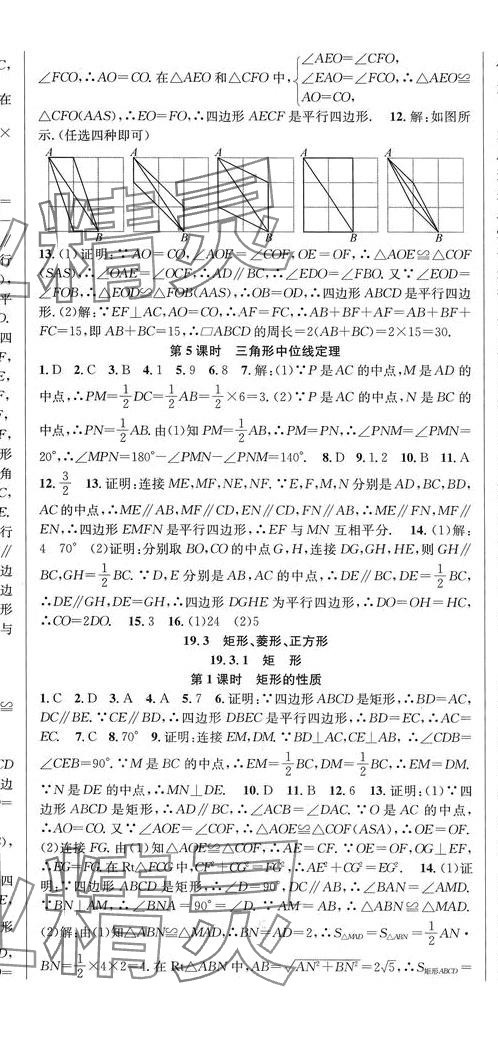 ∠AEO=∠CFO,
∠FCO,∴AO=CO.在△AEO和△CFO中,{∠EAO=∠FCO,∴△AEO≌
AO=CO,
△CFO(AAS),∴EO=FO,∴四边形AECF是平行四边形. 12.解:如图所
示.(任选四种即可)
A A A A A
B B B B B
13.(1)证明:∵AO=CO,∠AOE=∠COF,OE=OF,∴△AOE≌△COF
(SAS),∴∠OAE=∠OCF,∴AD∥BC,∴∠EDO=∠FBO.又∵∠EOD=
∠FOB,∴△EOD≌△FOB(AAS),∴OB=OD,∴四边形ABCD是平行四边
形.(2)解:∵EF⊥AC,AO=CO,∴AF=FC,∴AB+BF+AF=AB+BF+
FC=15,即AB+BC=15,∴□ABCD的周长=2(AB+BC)=2×15=30.
第5课时 三角形中位线定理
1.D 2.C 3.B 4.1 5.9 6.8 7.解:(1)∵P是AC的中点,M是AD的
中点,∴PM=1/2DC=1/2AB=1/2×6=3.(2)∵P是AC的中点,N是BC的
中点,∴PN=1/2AB.由(1)知PM=PN,∴PM=PN,∴∠PNM=∠PMN=
20°,∴∠MPN=180°-∠PMN-∠PNM=140°. 8.D 9.1.2 10.B 11.A
12.3/2 13.证明:连接ME,MF,NE,NF.∵E,F,M,N分别是AD,BC,BD,
AC的中点,∴ME∥AB,MF∥CD,EN∥CD,FN∥AB,∴ME∥FN,MF∥
EN,∴四边形EMFN是平行四边形,∴EF与MN互相平分. 14.(1)解:
4 70° (2)证明:分别取BO,CO的中点G,H,连接DG,GH,HE,则GH∥
BC,GH=1/2BC.∵D,E分别是AB,AC的中点,∴DE∥BC,DE=1/2BC,
∴DE∥GH,DE=GH,∴四边形DGHE为平行四边形,∴DO=OH=HC,
∴CO=2DO. 15.3 16.(1)24 (2)5
19.3 矩形、菱形、正方形
19.3.1 矩 形
第1课时 矩形的性质
1.C 2.D 3.A 4.A 5.7 6.证明:∵四边形ABCD是矩形,∴BD=AC,
DC∥BE.∵CE∥BD,∴四边形DBEC是平行四边形,∴BD=EC,∴AC=
EC. 7.C 8.70° 9.证明:连接EM,DM.∵BD⊥AC,CE⊥AB,∴∠CDB=
∠CEB=90°.∵M是BC的中点,∴EM=1/2BC,DM=1/2BC,∴EM=DM.
∵N是DE的中点,∴MN⊥DE. 10.D 11.B 12.6 13.证明:(1)∵四
边形ABCD是矩形,∴AD∥BC,∴∠ACB=∠DAC.∵O是AC的中点,
∴AO=CO.又∵∠AOE=∠COF,∴△AOE≌△COF(ASA),∴OE=OF.
(2)连接FG.由(1)知△AOE≌△COF,∴AE=CF.∵OE=OF,OG⊥EF,
∴EG=FG.在Rt△FCG中,CF²+CG²=FG²,∴AE²+CG²=EG². 14.(1)证
明:∵四边形ABCD是矩形,∴∠D=90°,DC∥AB,∴∠BAN=∠AMD.
∵BN⊥AM,∴∠BNA=90°=∠D.∵AM=AB,∴△ABN≌△MAD.
(2)解:由(1)知△ABN≌△MAD,∴AD=BN=2,AN=DM=4,∴S△MAD=S△ABN=1/2AN·
BN=1/2×4×2=4.在Rt△ABN中,AB=√AN²+BN²=2√5,∴S矩形ABCD=